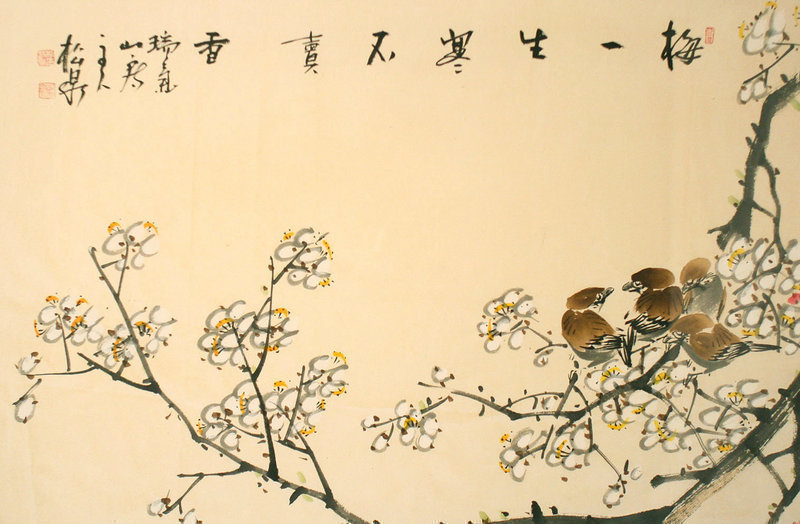 梅一生寒不賣香
瑞氣
山房
主人